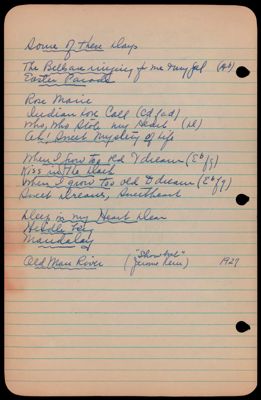 Some of These Days
The Bells are ringing for me & my gal (Ab)
Easter Parade
Rose Marie
Indian Love Call
Who, Who Stole my Heart
Ah! Sweet Mystery of Life
When I Grow Too Old to Dream (Eb/g)
Kiss in the Dark
When I grow too old to dream (Eb/g)
Sweet Dreams, Sweetheart
Deep in my Heart Dear
Mandalay
Old Man River ("Show boat" Jerome Kern) 1927